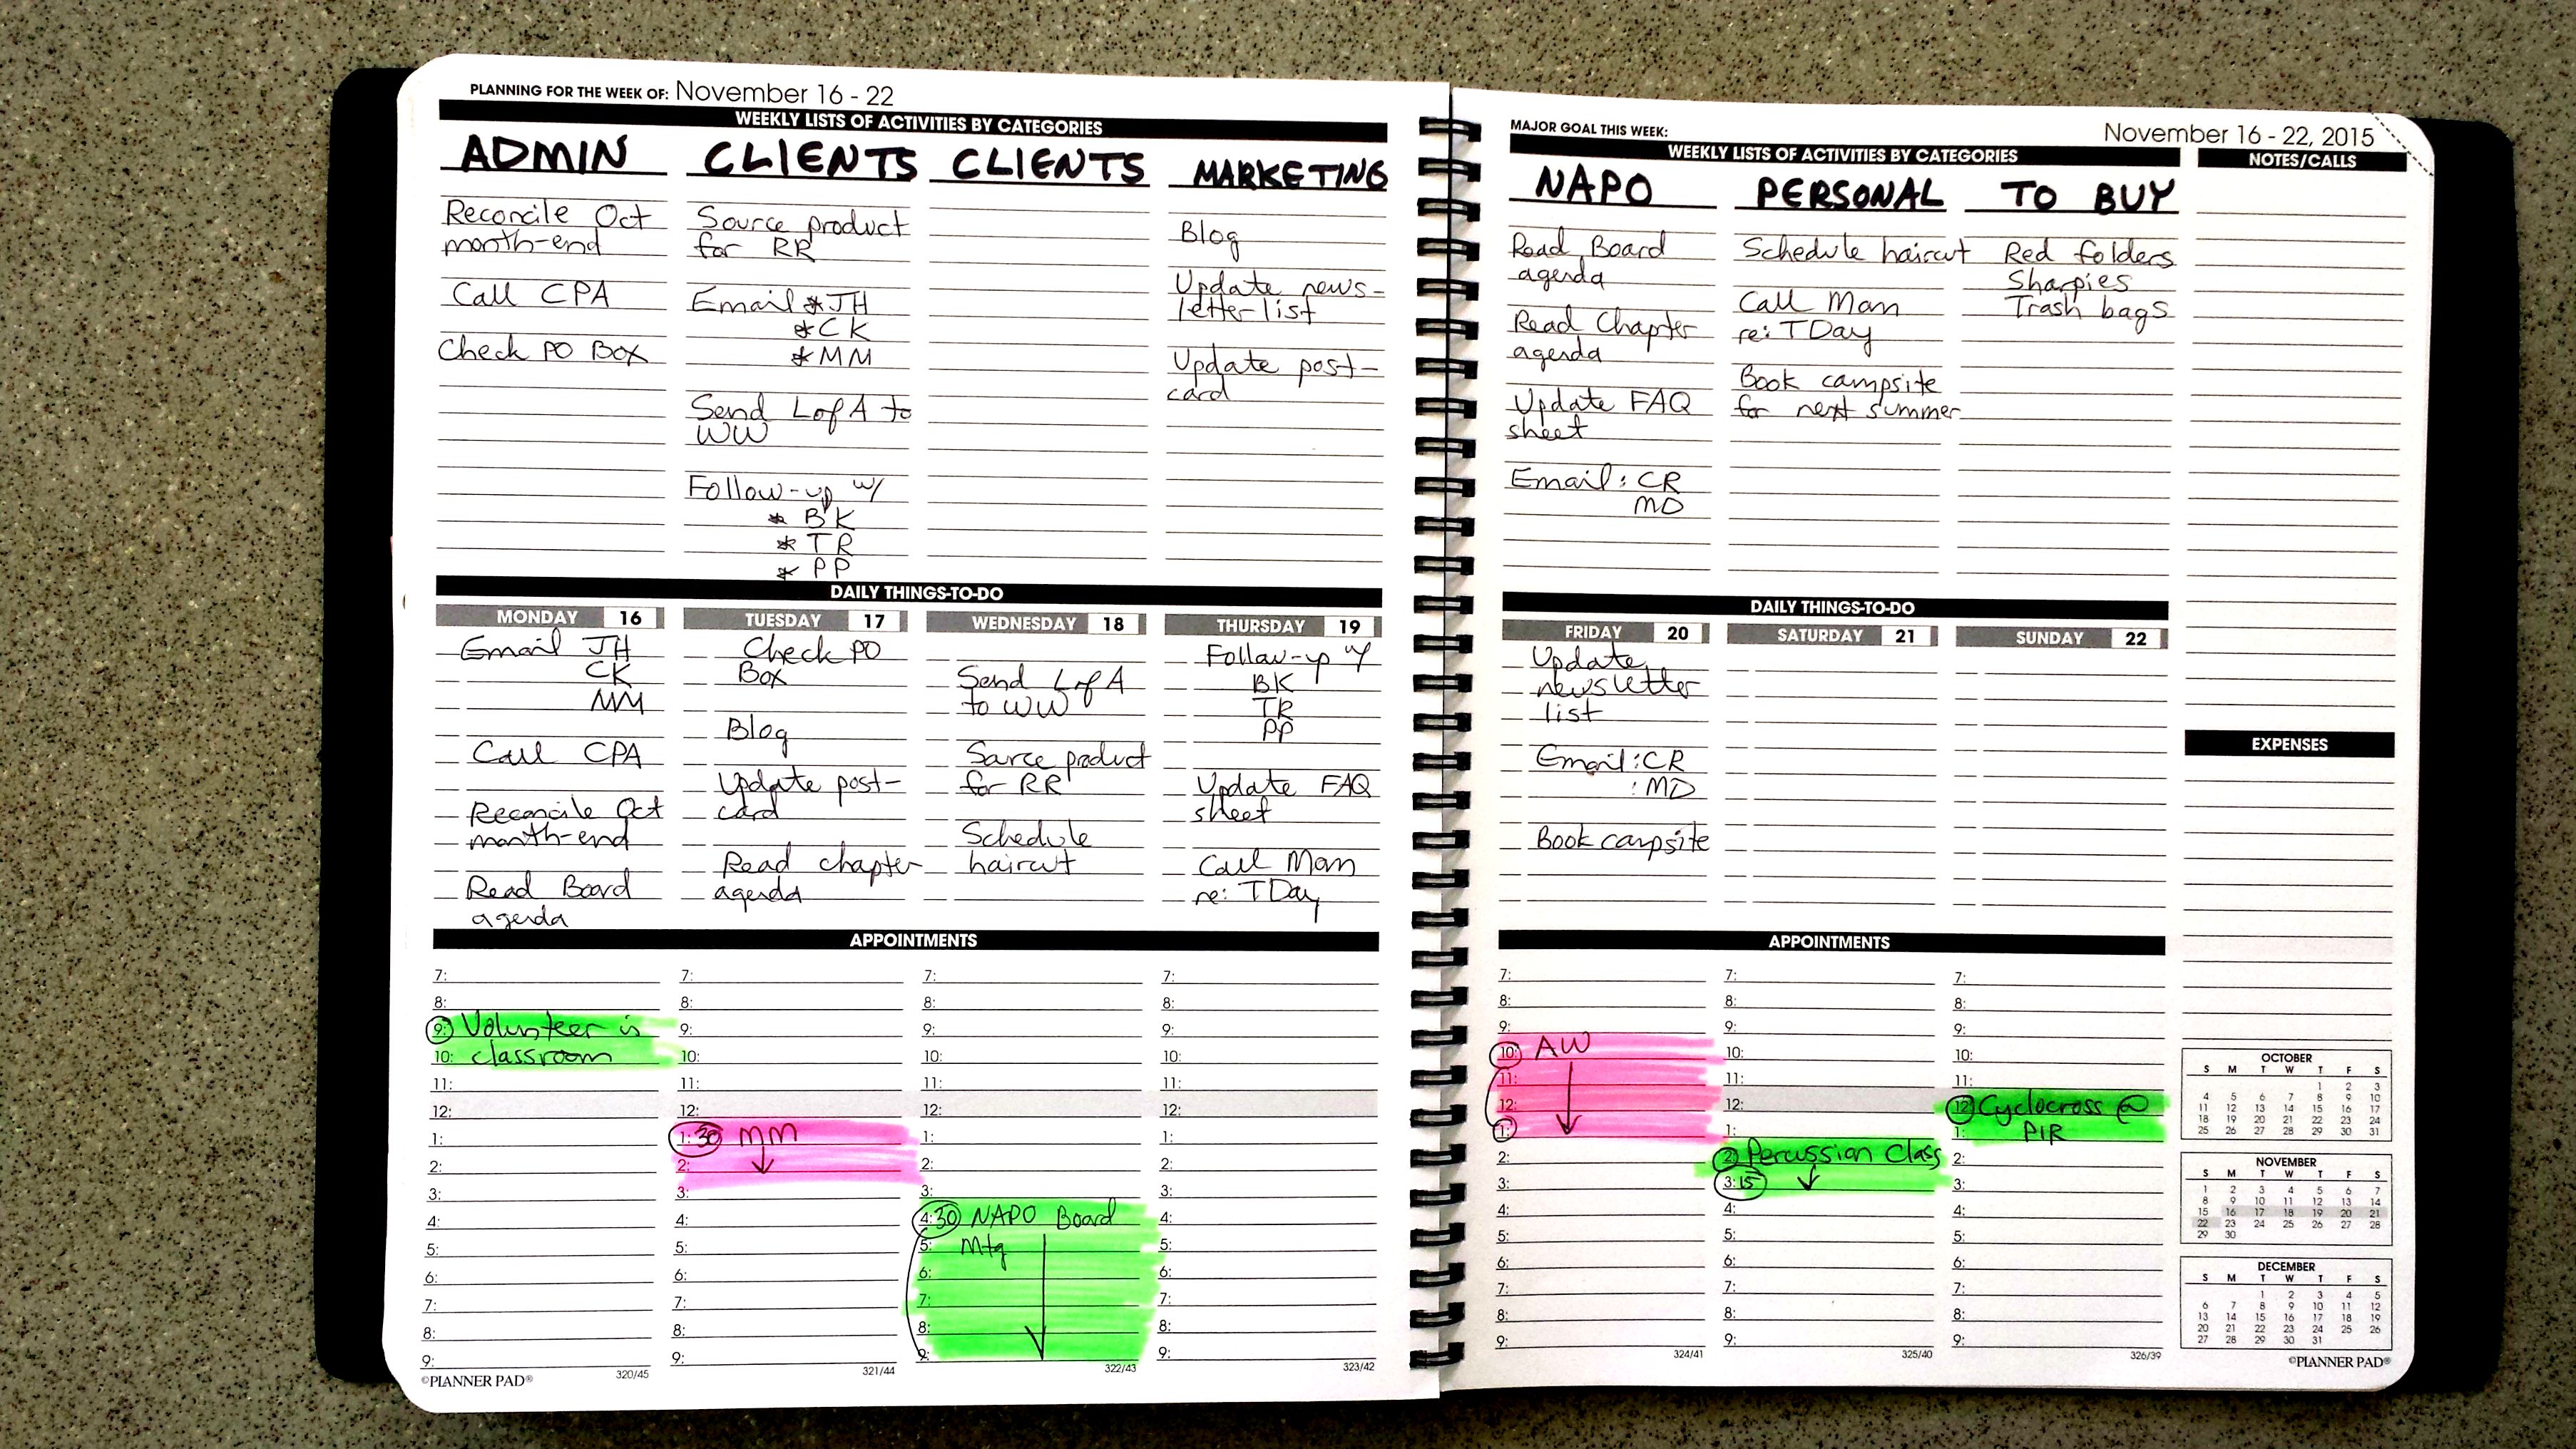 PLANNING FOR THE WEEK OF: November 16 - 22
WEEKLY LISTS OF ACTIVITIES BY CATEGORIES
ADMIN
Reconcile Oct
month-end
Call CPA
Check PO Box
CLIENTS
Source product
for RR
Email * JH
* CK
* MM
Send L of A to
WW
Follow-up w/
* BK
* TR
* PP
CLIENTS
MARKETING
Blog
Update news-
letter list
Update post-
card
DAILY THINGS-TO-DO
MONDAY 16
Email JH
CK
MM
Call CPA
Reconcile Oct
month-end
Read Board
agenda
TUESDAY 17
Check PO
Box
Blog
Update post-
card
Read chapter
agenda
WEDNESDAY 18
Send L of A
to WW
Source product
for RR
Schedule
haircut
THURSDAY 19
Follow-up w/
BK
TR
PP
Update FAQ
sheet
Call Mom
re: TDay
APPOINTMENTS
7:
8:
9: Volunteer in
10: classroom
11:
12:
1:
2:
3:
4:
5:
6:
7:
8:
9:
©PLANNER PAD® 320/45
7:
8:
9:
10:
11:
12:
1:30 MM
2:
3:
4:
5:
6:
7:
8:
9:
321/44
7:
8:
9:
10:
11:
12:
1:
2:
3:
4:30 NAPO Board
5: Mtg
6:
7:
8:
9:
322/43
7:
8:
9:
10:
11:
12:
1:
2:
3:
4:
5:
6:
7:
8:
9:
323/42
MAJOR GOAL THIS WEEK:
November 16 - 22, 2015
WEEKLY LISTS OF ACTIVITIES BY CATEGORIES
NAPO
Read Board
agenda
Read Chapter
agenda
Update FAQ
sheet
Email: CR
MD
PERSONAL
Schedule haircut
Call Mom
re: TDay
Book campsite
for next summer
TO BUY
Red folders
Sharpies
Trash bags
NOTES/CALLS
DAILY THINGS-TO-DO
FRIDAY 20
Update
newsletter
list
Email: CR
: MD
Book campsite
SATURDAY 21
SUNDAY 22
EXPENSES
APPOINTMENTS
7:
8:
9:
10: AW
11:
12:
1:
2:
3:
4:
5:
6:
7:
8:
9:
324/41
7:
8:
9:
10:
11:
12:
1:
2: Percussion Class
3:15
4:
5:
6:
7:
8:
9:
325/40
7:
8:
9:
10:
11:
12: Cyclocross @
1: PIR
2:
3:
4:
5:
6:
7:
8:
9:
326/39
OCTOBER
S M T W T F S
1 2 3
4 5 6 7 8 9 10
11 12 13 14 15 16 17
18 19 20 21 22 23 24
25 26 27 28 29 30 31
NOVEMBER
S M T W T F S
1 2 3 4 5 6 7
8 9 10 11 12 13 14
15 16 17 18 19 20 21
22 23 24 25 26 27 28
29 30
DECEMBER
S M T W T F S
1 2 3 4 5
6 7 8 9 10 11 12
13 14 15 16 17 18 19
20 21 22 23 24 25 26
27 28 29 30 31
©PLANNER PAD®